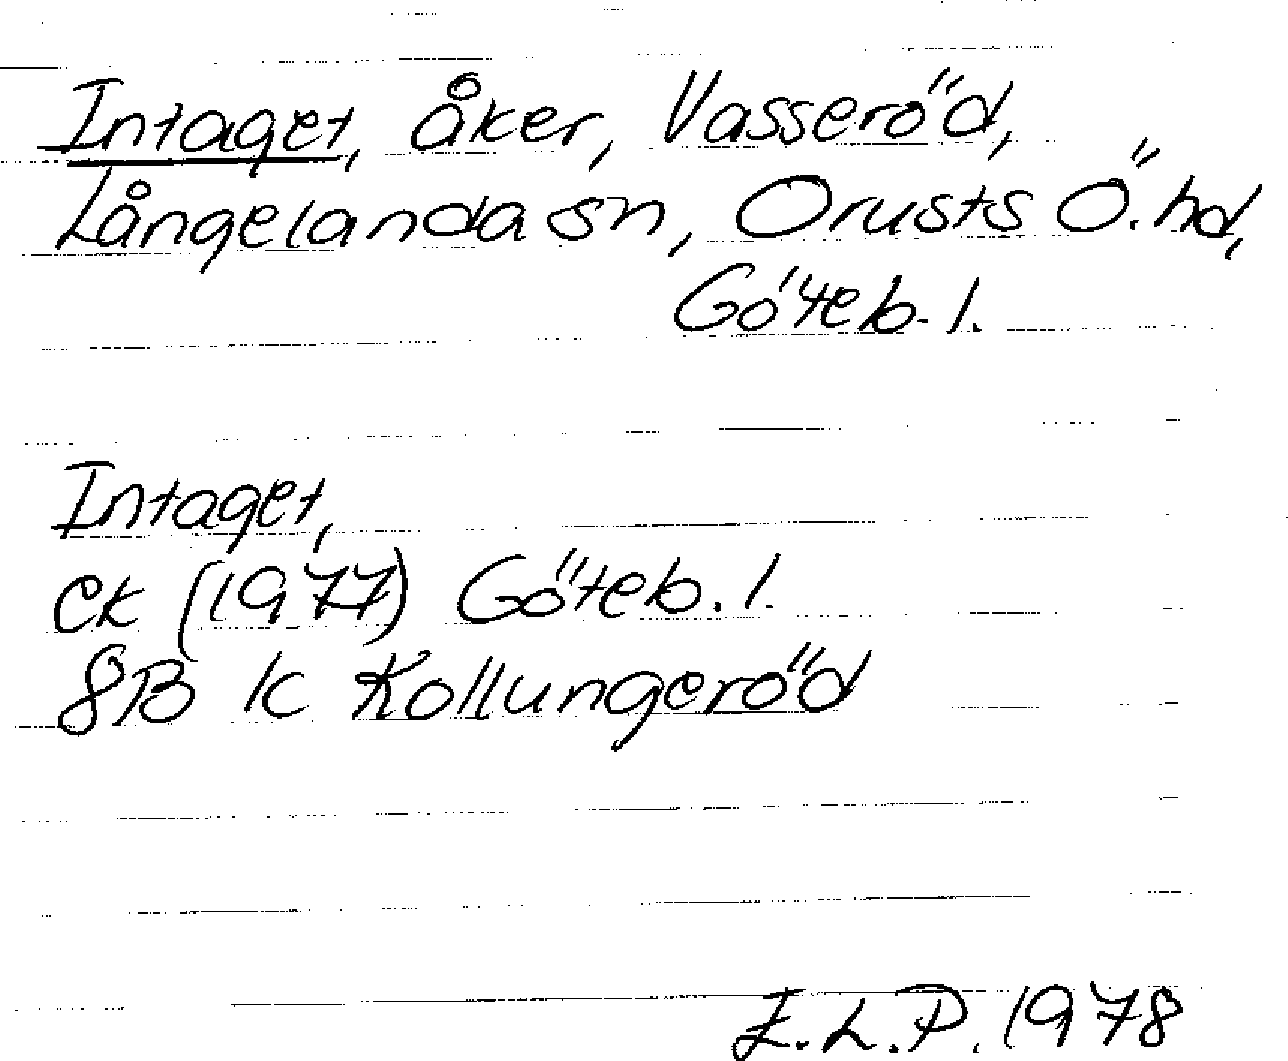 Intaget, åker, Vasseröd,
Långelanda sn, Orusts Ö. hd,
Göteb. l.
Intaget,
ek (1977) Göteb. l.
8B k Kollungeröd
E.L.P. 1978